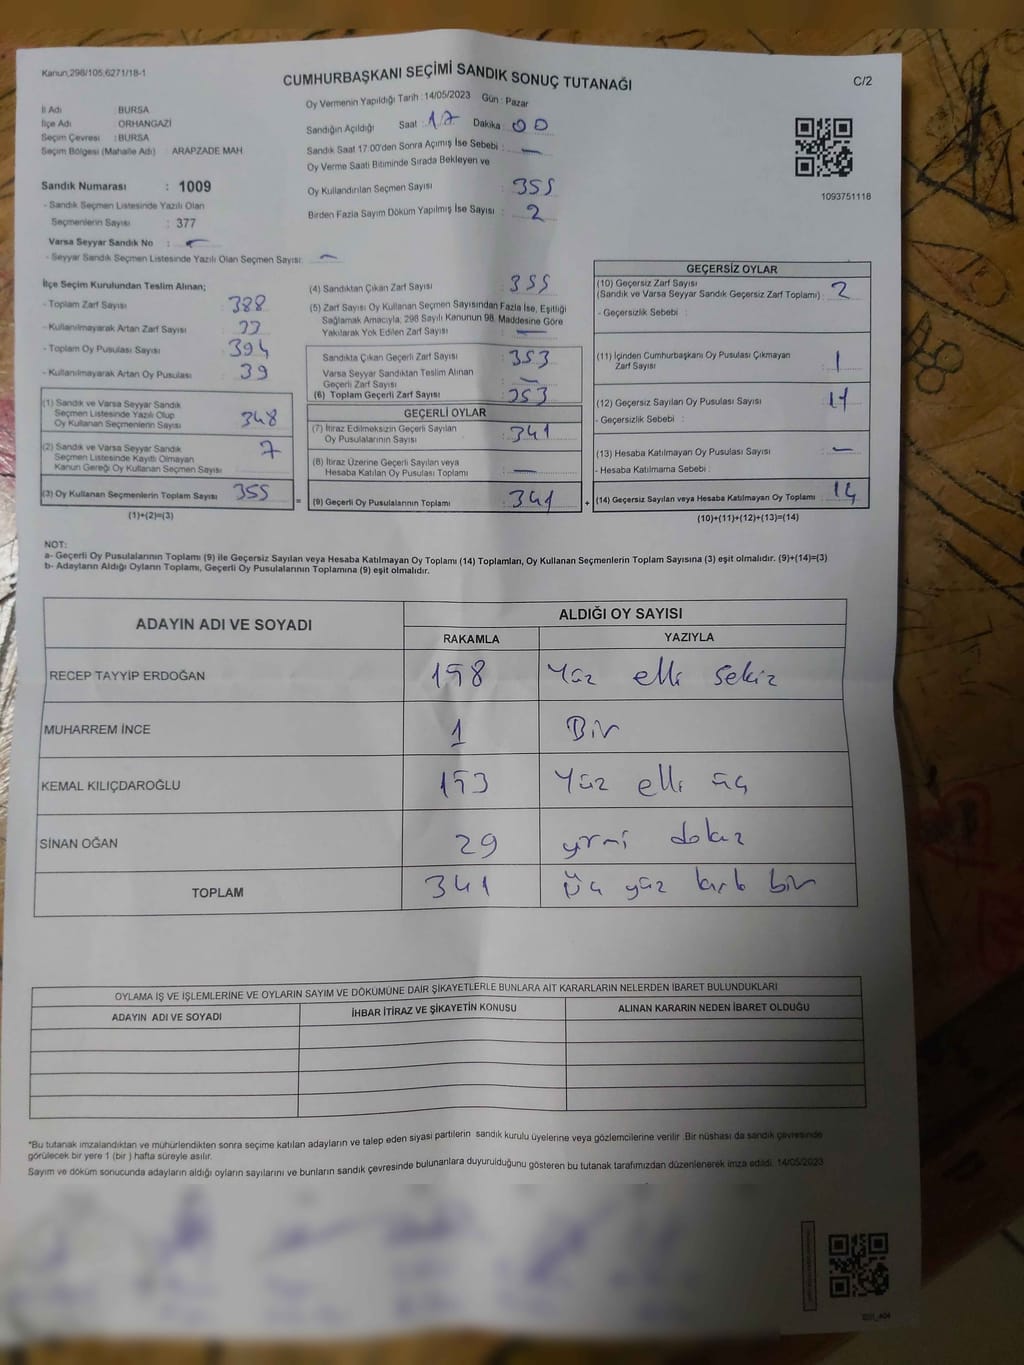 Kanun,298/105,6271/18-1
CUMHURBAŞKANI SEÇİMİ SANDIK SONUÇ TUTANAĞI
C/2
İl Adı : BURSA
İlçe Adı : ORHANGAZİ
Seçim Çevresi : BURSA
Seçim Bölgesi (Mahalle Adı) : ARAPZADE MAH.
Sandık Numarası : 1009
- Sandık Seçmen Listesinde Yazılı Olan
Seçmenlerin Sayısı : 377
Varsa Seyyar Sandık No : -
- Seyyar Sandık Seçmen Listesinde Yazılı Olan Seçmen Sayısı: -
Oy Vermenin Yapıldığı Tarih : 14/05/2023 Gün : Pazar
Sandığın Açıldığı Saat : 17 Dakika : 00
Sandık Saat 17:00'den Sonra Açımış İse Sebebi : -
Oy Verme Saati Bitiminde Sırada Bekleyen ve
Oy Kullandırılan Seçmen Sayısı : 355
Birden Fazla Sayım Döküm Yapılmış İse Sayısı : 2
1093751118
İlçe Seçim Kurulundan Teslim Alınan;
- Toplam Zarf Sayısı 388
- Kullanılmayarak Artan Zarf Sayısı 33
- Toplam Oy Pusulası Sayısı 394
- Kullanılmayarak Artan Oy Pusulası 39
(1) Sandık ve Varsa Seyyar Sandık
Seçmen Listesinde Yazılı Olup
Oy Kullanan Seçmenlerin Sayısı 348
(2) Sandık ve Varsa Seyyar Sandık
Seçmen Listesinde Kayıtlı Olmayan
Kanun Gereği Oy Kullanan Seçmen Sayısı 7
(3) Oy Kullanan Seçmenlerin Toplam Sayısı 355
(1)+(2)=(3)
(4) Sandıktan Çıkan Zarf Sayısı 355
(5) Zarf Sayısı Oy Kullanan Seçmen Sayısından Fazla İse, Eşitliği
Sağlamak Amacıyla, 298 Sayılı Kanunun 98. Maddesine Göre
Yakılarak Yok Edilen Zarf Sayısı : -
Sandıkta Çıkan Geçerli Zarf Sayısı 353
Varsa Seyyar Sandıktan Teslim Alınan
Geçerli Zarf Sayısı -
(6) Toplam Geçerli Zarf Sayısı 353
GEÇERLİ OYLAR
(7) İtiraz Edilmeksizin Geçerli Sayılan
Oy Pusulalarının Sayısı 341
(8) İtiraz Üzerine Geçerli Sayılan veya
Hesaba Katılan Oy Pusulası Toplamı -
= (9) Geçerli Oy Pusulalarının Toplamı 341 +
GEÇERSİZ OYLAR
(10) Geçersiz Zarf Sayısı
(Sandık ve Varsa Seyyar Sandık Geçersiz Zarf Toplamı) : 2
- Geçersizlik Sebebi :
(11) İçinden Cumhurbaşkanı Oy Pusulası Çıkmayan
Zarf Sayısı 1
(12) Geçersiz Sayılan Oy Pusulası Sayısı 11
- Geçersizlik Sebebi :
(13) Hesaba Katılmayan Oy Pusulası Sayısı -
- Hesaba Katılmama Sebebi :
(14) Geçersiz Sayılan veya Hesaba Katılmayan Oy Toplamı 14
(10)+(11)+(12)+(13)=(14)
NOT:
a- Geçerli Oy Pusulalarının Toplamı (9) ile Geçersiz Sayılan veya Hesaba Katılmayan Oy Toplamı (14) Toplamları, Oy Kullanan Seçmenlerin Toplam Sayısına (3) eşit olmalıdır. (9)+(14)=(3)
b- Adayların Aldığı Oyların Toplamı, Geçerli Oy Pusulalarının Toplamına (9) eşit olmalıdır.
ADAYIN ADI VE SOYADI
ALDIĞI OY SAYISI
RAKAMLA YAZIYLA
RECEP TAYYİP ERDOĞAN 158 Yüz elli sekiz
MUHARREM İNCE 1 Bir
KEMAL KILIÇDAROĞLU 153 Yüz elli üç
SİNAN OĞAN 29 yirmi dokuz
TOPLAM 341 Üç yüz kırk bir
OYLAMA İŞ VE İŞLEMLERİNE VE OYLARIN SAYIM VE DÖKÜMÜNE DAİR ŞİKAYETLERLE BUNLARA AİT KARARLARIN NELERDEN İBARET BULUNDUKLARI
ADAYIN ADI VE SOYADI İHBAR İTİRAZ VE ŞİKAYETİN KONUSU ALINAN KARARIN NEDEN İBARET OLDUĞU
*Bu tutanak imzalandıktan ve mühürlendikten sonra seçime katılan adayların ve talep eden siyasi partilerin sandık kurulu üyelerine veya gözlemcilerine verilir .Bir nüshası da sandık çevresinde
görülecek bir yere 1 (bir ) hafta süreyle asılır.
Sayım ve döküm sonucunda adayların aldığı oyların sayılarını ve bunların sandık çevresinde bulunanlara duyurulduğunu gösteren bu tutanak tarafımızdan düzenlenerek imza edildi. 14/05/2023